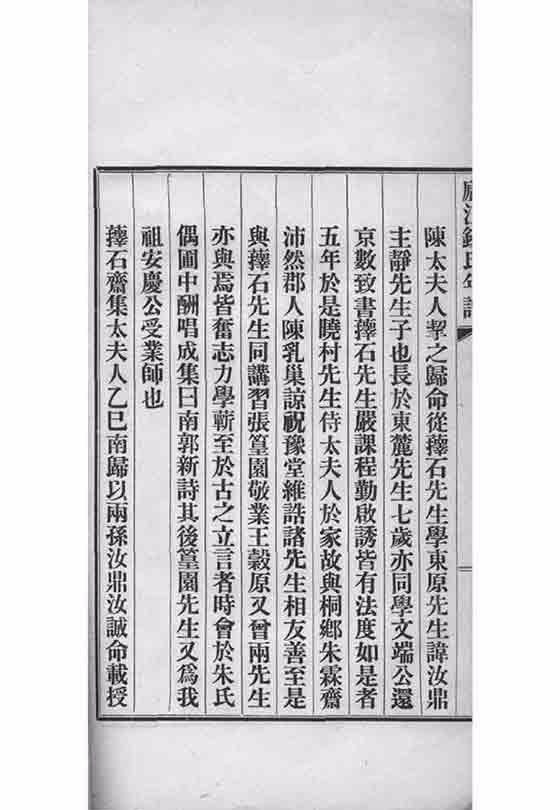 廬江錢氏年譜
陳太夫人挈之歸命從蘀石先生學東原先生諱汝鼎
主靜先生子也長於東麓先生七歲亦同學文端公還
京數致書蘀石先生嚴課程勤啟誘皆有法度如是者
五年於是曉村先生侍太夫人於家故與桐鄉朱霖齋
沛然郡人陳乳巢諒祝豫堂維誥諸先生相友善至是
與蘀石先生同講習張篁園敬業王穀原又曾兩先生
亦與焉皆奮志力學蘄至於古之立言者時會於朱氏
偶圃中酬唱成集曰南郭新詩其後篁園先生又為我
祖安慶公受業師也
蘀石齋集太夫人乙巳南歸以兩孫汝鼎汝誠命載授